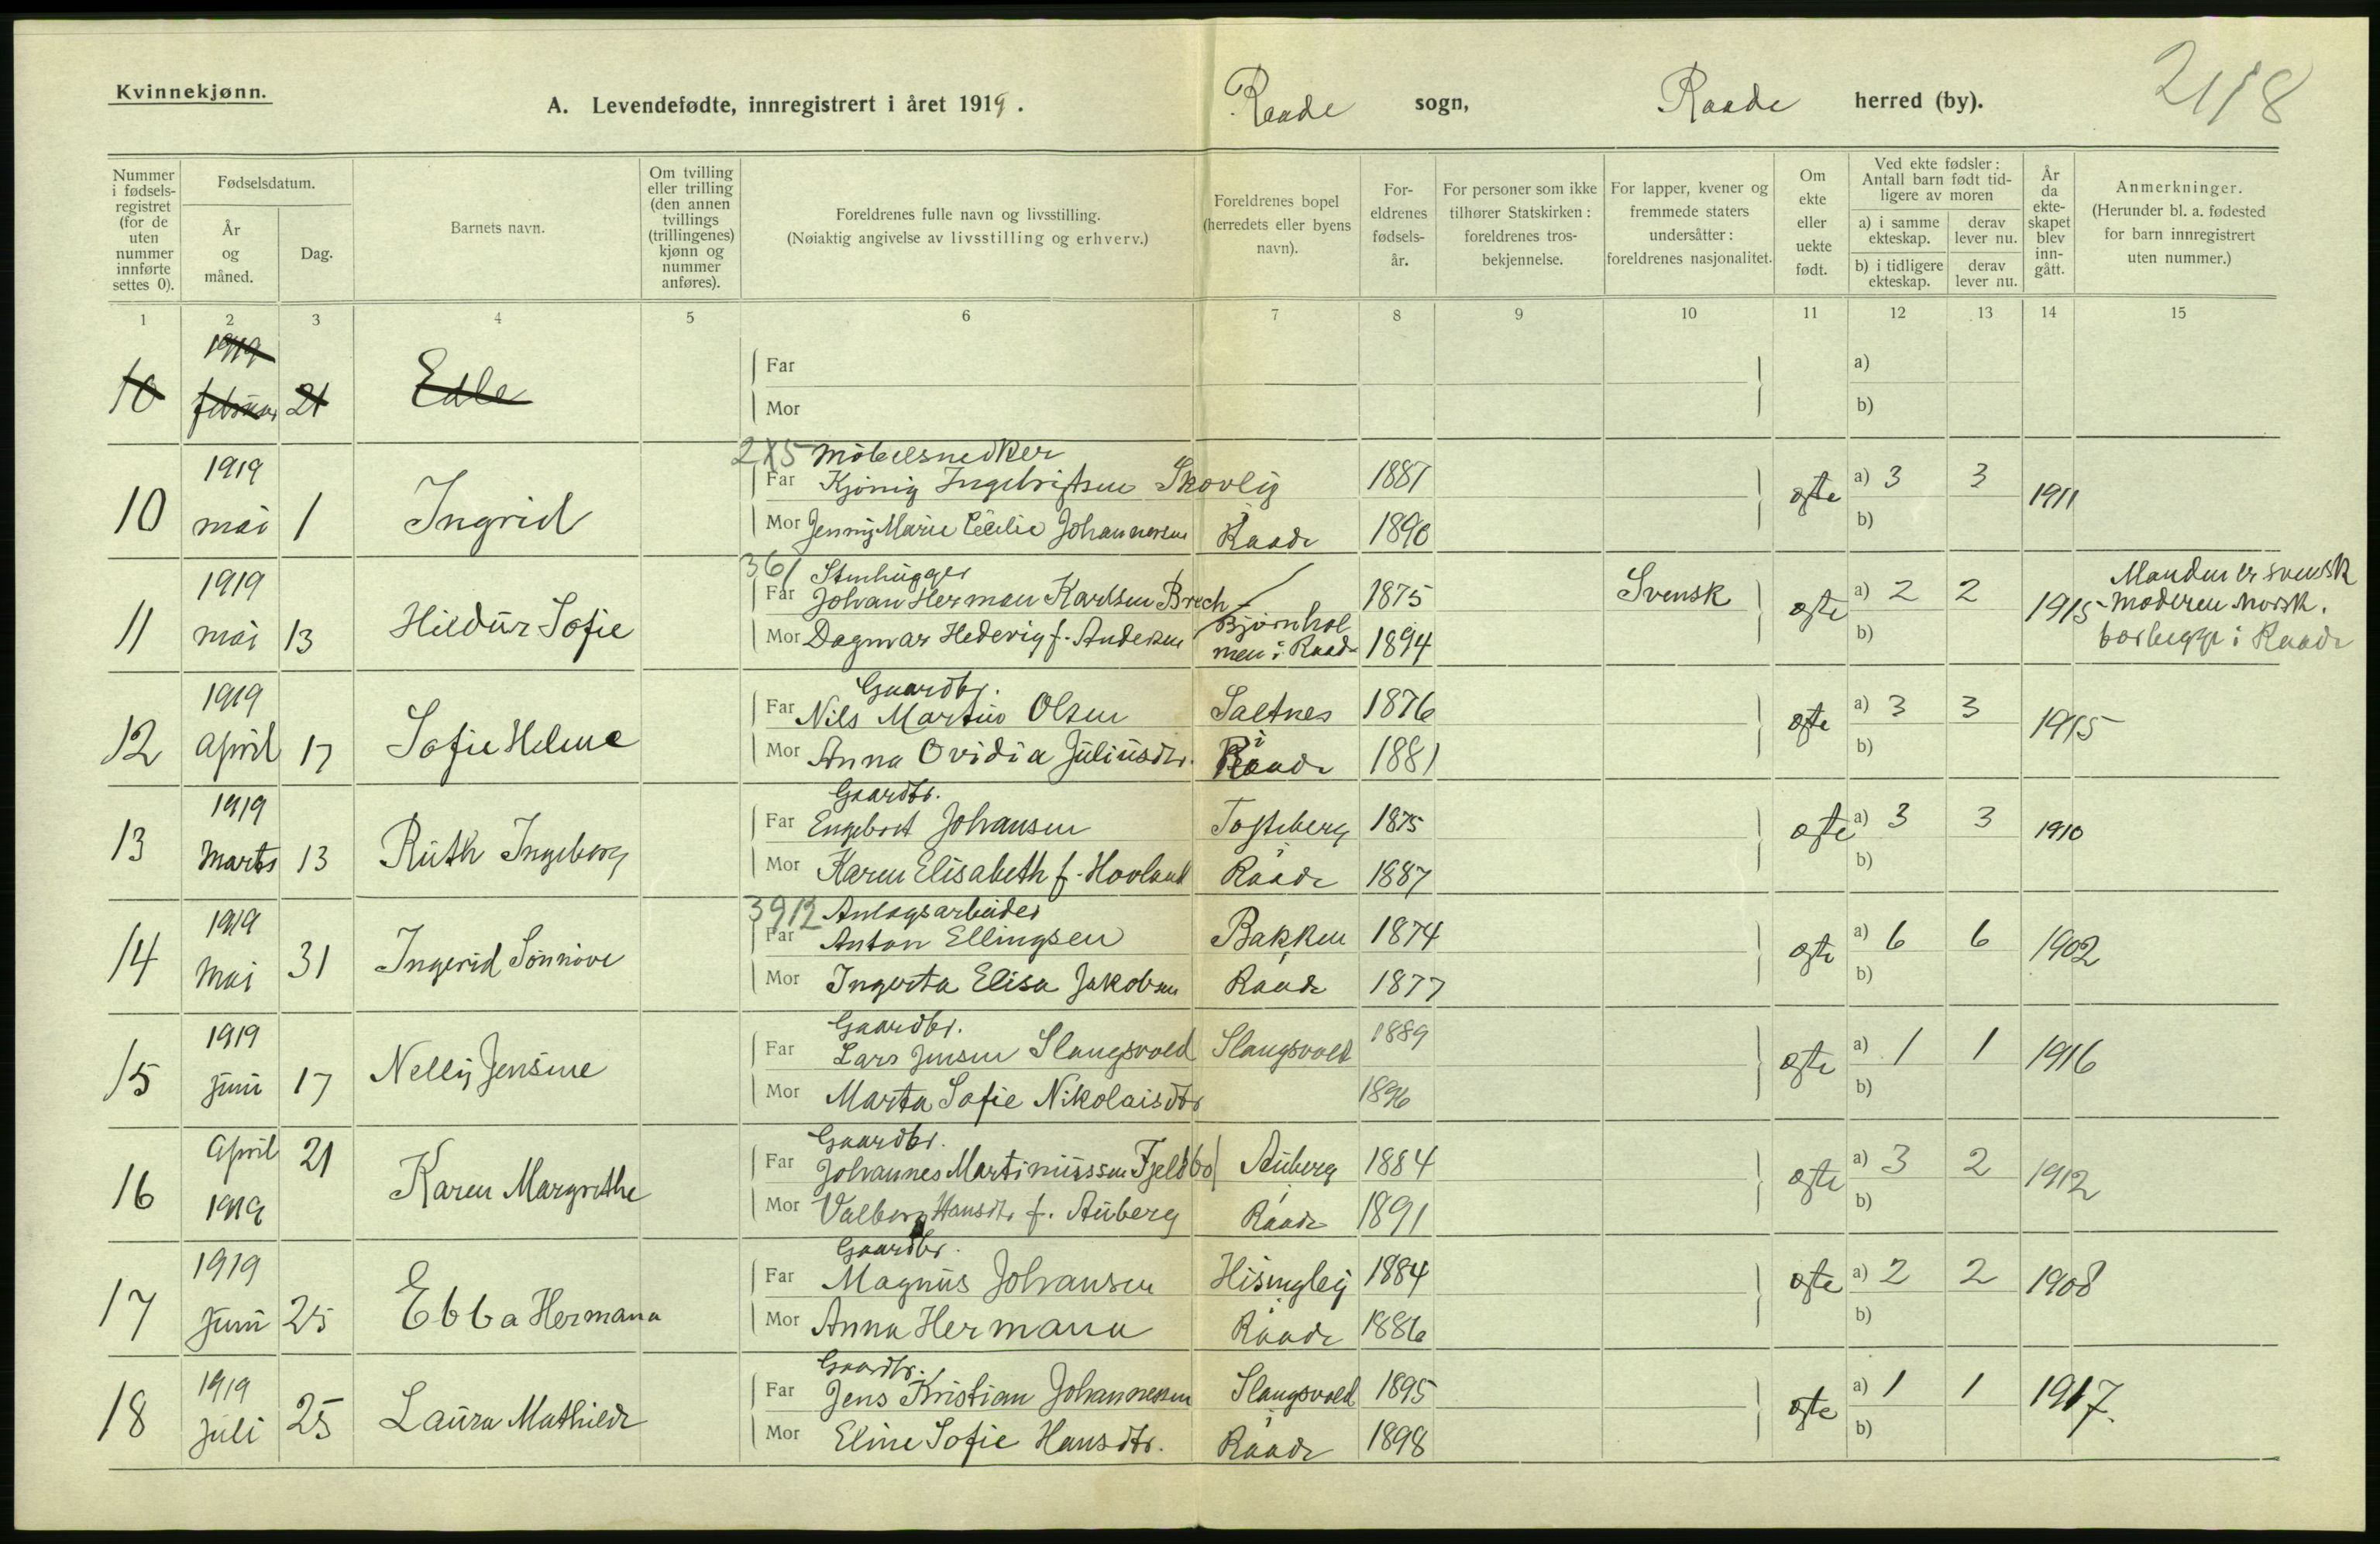 Kvinnekjønn.
A. Levendefødte, innregistrert i året 1919.
Raade sogn, Raade herred (by).
2118
Nummer i fødselsregistret (for de uten nummer innførte settes 0).
Fødselsdatum.
År og måned.
Dag.
Barnets navn.
Om tvilling eller trilling (den annen tvillings (trillingenes) kjønn og nummer anføres).
Foreldrenes fulle navn og livsstilling.
(Nøiaktig angivelse av livsstilling og erhverv.)
Foreldrenes bopel (herredets eller byens navn).
Foreldrenes fødselsår.
For personer som ikke tilhører Statskirken: foreldrenes trosbekjennelse.
For lapper, kvener og fremmede staters undersåtter: foreldrenes nasjonalitet.
Om ekte eller uekte født.
Ved ekte fødsler: Antall barn født tidligere av moren
a) i samme ekteskap.
derav lever nu.
b) i tidligere ekteskap.
derav lever nu.
År da ekteskapet blev inngått.
Anmerkninger.
(Herunder bl. a. fødested for barn innregistrert uten nummer.)
1 2 3 4 5 6 7 8 9 10 11 12 13 14 15
1919
10 februar 21 Edle
Far a)
Mor b)
2X5 Møbelsnedker
1919 Far Kjønig Ingebrigtsen Skovly 1887 a) 3 3
10 mai 1 Ingrid ægte 1911
Mor Jenny Marie Cecilie Johannesen Raade 1890 b)
361 Stenhugger
1919 Far Johan Herman Karlsen Brech 1875 Svensk a) 2 2 Manden er svensk
11 mai 13 Hildur Sofie ægte 1915 moderen norsk.
Mor Dagmar Hedevig f. Andersen Bjørnholmen i Raade 1894 b) bor begge i Raade
Gaardbr.
1919 Far Nils Martin Olsen Saltnes 1876 a) 3 3
12 April 17 Sofie Helene ægte 1915
Mor Anna Ovidia Juliusdtr. i Raade 1881 b)
Gaardbr.
1919 Far Engebret Johansen Tofteberg 1875 a) 3 3
13 Marts 13 Ruth Ingeborg ægte 1910
Mor Karen Elisabeth f. Hovland i Raade 1887 b)
3912 Anlægsarbeider
1919 Far Anton Ellingsen Bakken 1874 a) 6 6
14 Mai 31 Ingerid Sønnøve ægte 1902
Mor Ingerta Elisa Jakobsen Raade 1877 b)
Gaardbr.
1919 Far Lars Jensen Slangsvold Slangsvold 1889 a) 1 1
15 juni 17 Nelly Jensine ægte 1916
Mor Marta Sofie Nikolaisdtr 1896 b)
Gaardbr.
April 21 Far Johannes Martinussen Fjeldbo Auberg 1884 a) 3 2
16 1919 Karen Margrethe ægte 1912
Mor Valborg Hansdtr f. Auberg i Raade 1891 b)
Gaardbr.
1919 Far Magnus Johansen 1884 a) 2 2
17 Juni 25 Ebba Hermana ægte 1908
Mor Anna Hermana i Raade 1886 b)
Gaardbr.
1919 Far Jens Kristian Johannessen Slangsvold 1895 a) 1 1
18 juli 25 Laura Mathilde ægte 1917.
Mor Eline Sofie Hansdtr. i Raade 1898 b)